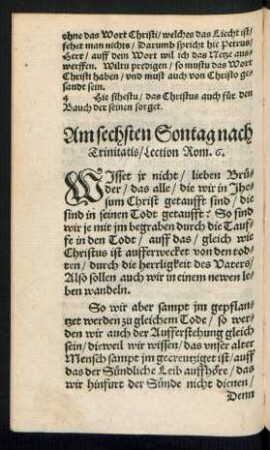 ohne das Wort Christi/ welches das Liecht ist/
sehet man nichts/ Darumb spricht hie Petrus/
Herr/ auff dein Wort wil ich das Netze aus-
werffen. Wiltu predigen/ so mustu das Wort
Christi haben/ vnd must auch von Christo ge-
sandt sein.
4 Hie sihestu/ das Christus auch für den
Bauch der seinen sorget.
Am sechsten Sontag nach
Trinitatis/ Lection Rom. 6.
WJsset jr nicht/ lieben Brü-
der/ das alle/ die wir in Jhe-
sum Christ getaufft sind/ die
sind in seinen Todt getaufft? So sind
wir je mit jm begraben durch die Tauf-
fe in den Todt/ auff das/ gleich wie
Christus ist aufferwecket von den tod-
ten/ durch die herrligkeit des Vaters/
Also sollen auch wir in einem newen le-
ben wandeln.
So wir aber sampt jm gepflan-
tzet werden zu gleichem Tode/ so wer-
den wir auch der Aufferstehung gleich
sein/ dieweil wir wissen/ das vnser alter
Mensch sampt jm gecreutziget ist/ auff
das der Sündliche Leib auffhöre/ das
wir hinfurt der Sünde nicht dienen/
Denn